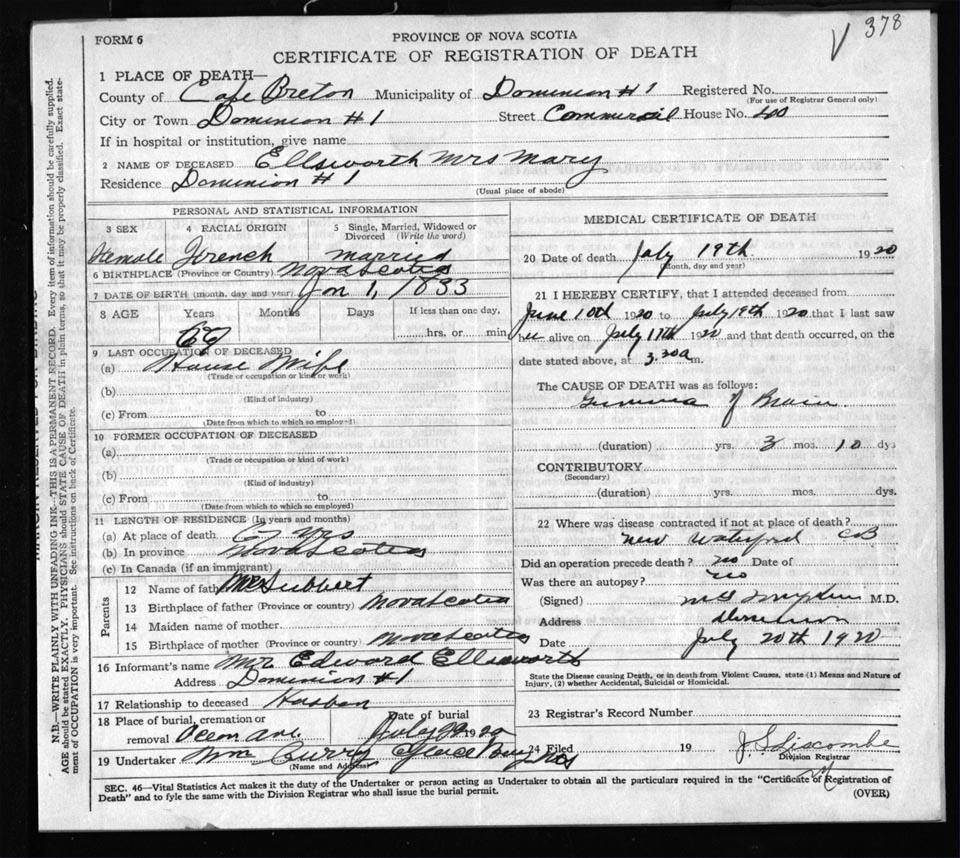 378
FORM 6
PROVINCE OF NOVA SCOTIA
CERTIFICATE OF REGISTRATION OF DEATH
1 PLACE OF DEATH—
County of Cape Breton Municipality of Dominion #1 Registered No.
(For use of Registrar General only)
City or Town Dominion #1 Street Commercial House No. 400
If in hospital or institution, give name
2 NAME OF DECEASED Ellsworth Mrs Mary
Residence Dominion #1
(Usual place of abode)
PERSONAL AND STATISTICAL INFORMATION
3 SEX 4 RACIAL ORIGIN 5 Single, Married, Widowed or
Divorced (Write the word)
Female French married
6 BIRTHPLACE (Province or Country) Nova Scotia
7 DATE OF BIRTH (month, day and year) Jan 1, 1833
8 AGE Years Months Days If less than one day,
hrs. or min.
9 LAST OCCUPATION OF DECEASED
(a) House Wife
(Trade or occupation or kind of work)
(b)
(Kind of industry)
(c) From to
(Date from which to which so employed)
10 FORMER OCCUPATION OF DECEASED
(a)
(Trade or occupation or kind of work)
(b)
(Kind of industry)
(c) From to
(Date from which to which so employed)
11 LENGTH OF RESIDENCE (In years and months)
(a) At place of death yrs
(b) In province Nova Scotia
(c) In Canada (if an immigrant)
Parents
12 Name of father
13 Birthplace of father (Province or country) Nova Scotia
14 Maiden name of mother
15 Birthplace of mother (Province or country) Nova Scotia
16 Informant's name Mr Edward Ellsworth
Address Dominion #1
17 Relationship to deceased Husban
18 Place of burial, cremation or Date of burial
removal Ocean Ave. July 22 1920
19 Undertaker Wm Curry Glace Bay NS
(Name and Address)
MEDICAL CERTIFICATE OF DEATH
20 Date of death July 19th 1920
(Month, day and year)
21 I HEREBY CERTIFY, that I attended deceased from
June 10th 1920 to July 19th 1920 that I last saw
her alive on July 17th 1920 and that death occurred, on the
date stated above, at 3.30a m.
The CAUSE OF DEATH was as follows:
of Brain
(duration) yrs. 3 mos. 10 dys
CONTRIBUTORY
(Secondary)
(duration) yrs. mos. dys.
22 Where was disease contracted if not at place of death?
New Waterford CB
Did an operation precede death? no Date of
Was there an autopsy? no
(Signed) M.D.
Address Dominion
Date July 20th 1920
State the Disease causing Death, or in death from Violent Causes, state (1) Means and Nature of
Injury, (2) whether Accidental, Suicidal or Homicidal.
23 Registrar's Record Number
24 Filed 19 J S Liscombe
Division Registrar
SEC. 46—Vital Statistics Act makes it the duty of the Undertaker or person acting as Undertaker to obtain all the particulars required in the "Certificate of Registration of
Death" and to fyle the same with the Division Registrar who shall issue the burial permit.
(OVER)
N.B.—WRITE PLAINLY WITH UNFADING INK—THIS IS A PERMANENT RECORD. Every item of information should be carefully supplied.
AGE should be stated EXACTLY. PHYSICIANS should STATE CAUSE OF DEATH in plain terms, so that it may be properly classified. Exact state-
ment of OCCUPATION is very important. See instructions on back of Certificate.